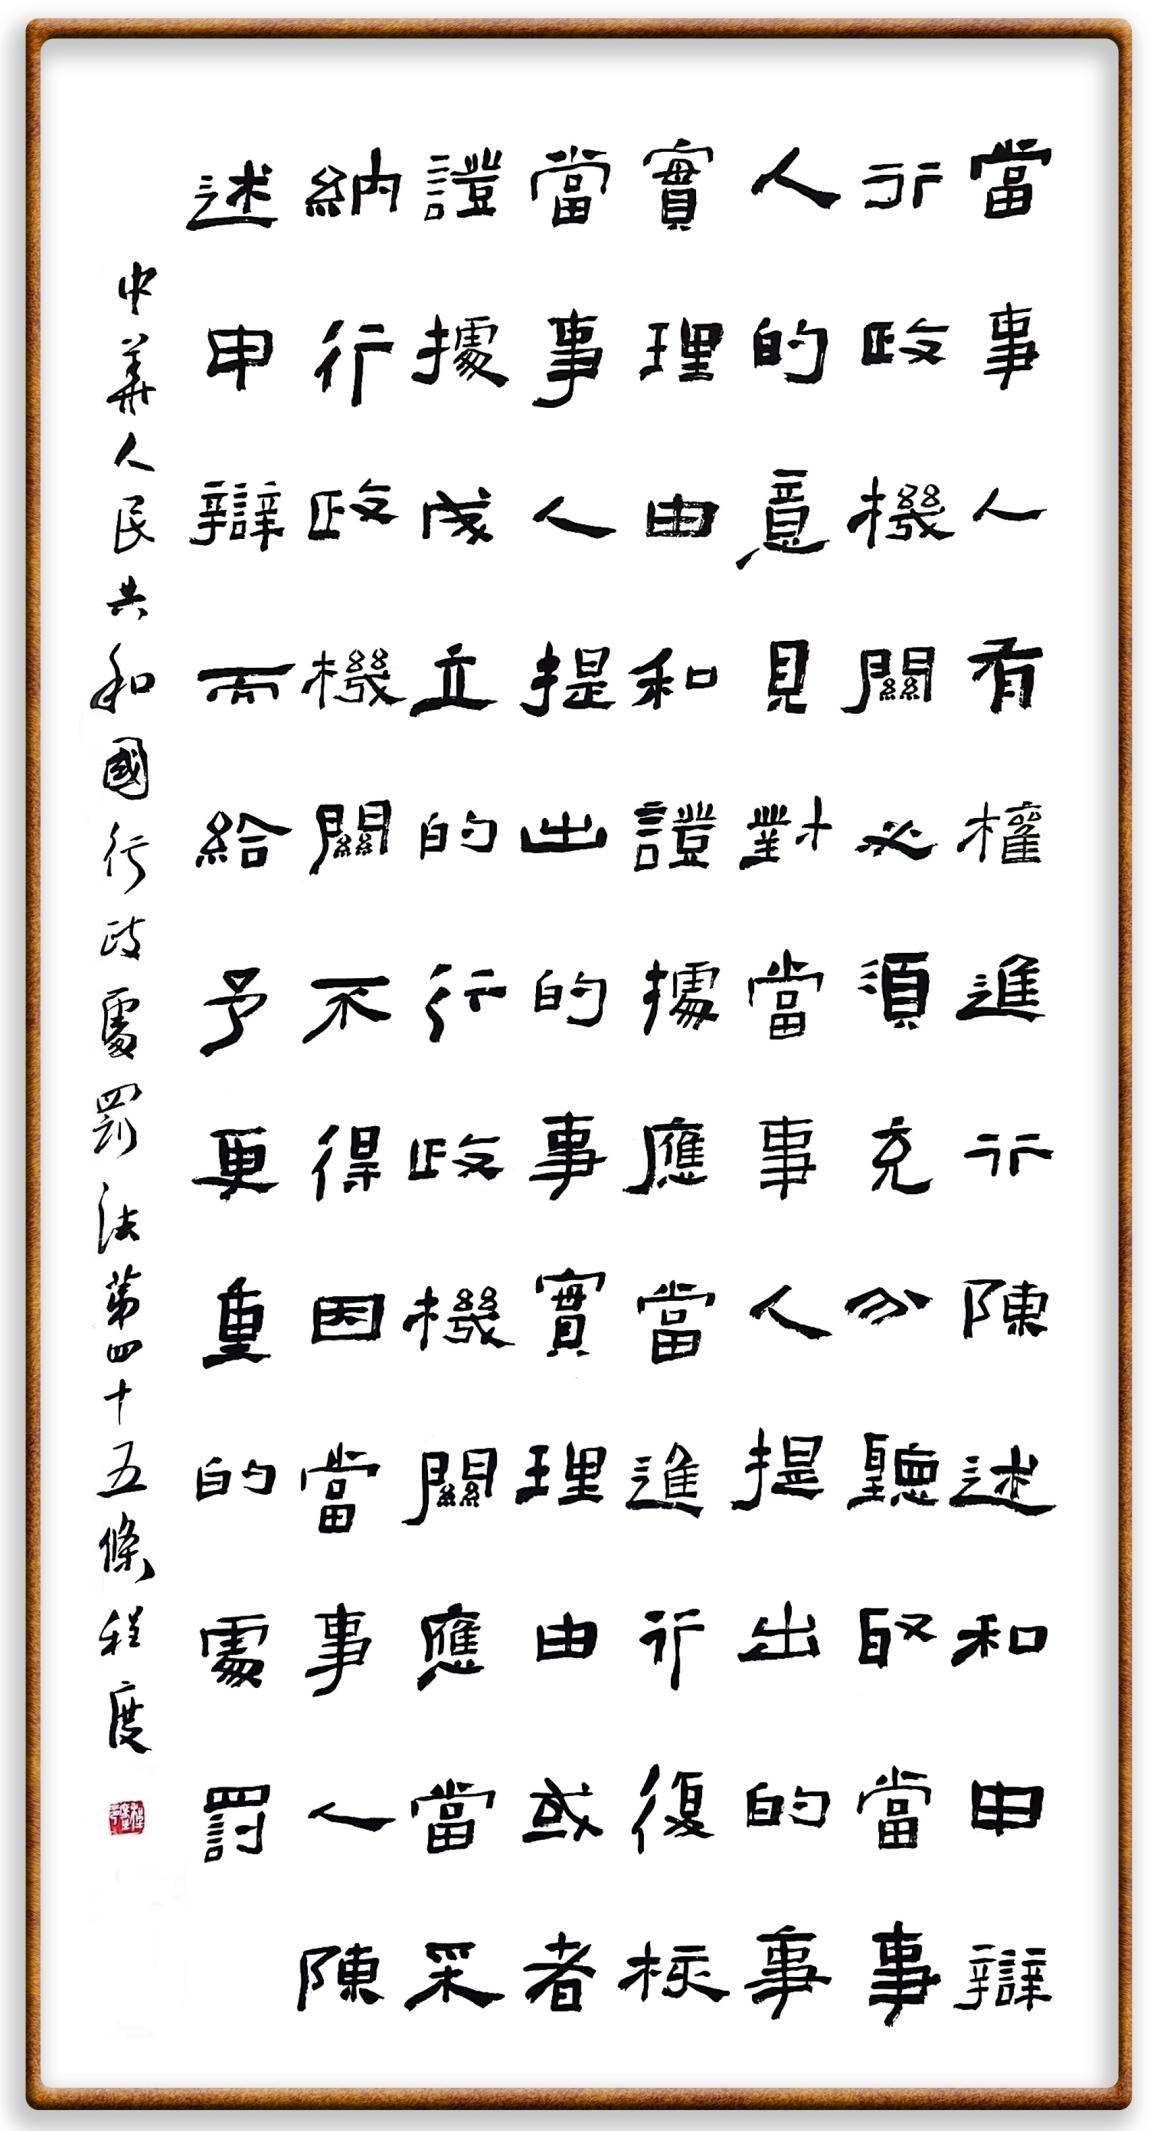 當事人有權進行陳述和申辯
行政機關必須充分聽取當事
人的意見對當事人提出的事
實理由和證據應當進行復核
當事人提出的事實理由或者
證據成立的行政機關應當采
納行政機關不得因當事人陳
述申辯而給予更重的處罰
中華人民共和國行政處罰法第四十五條程度